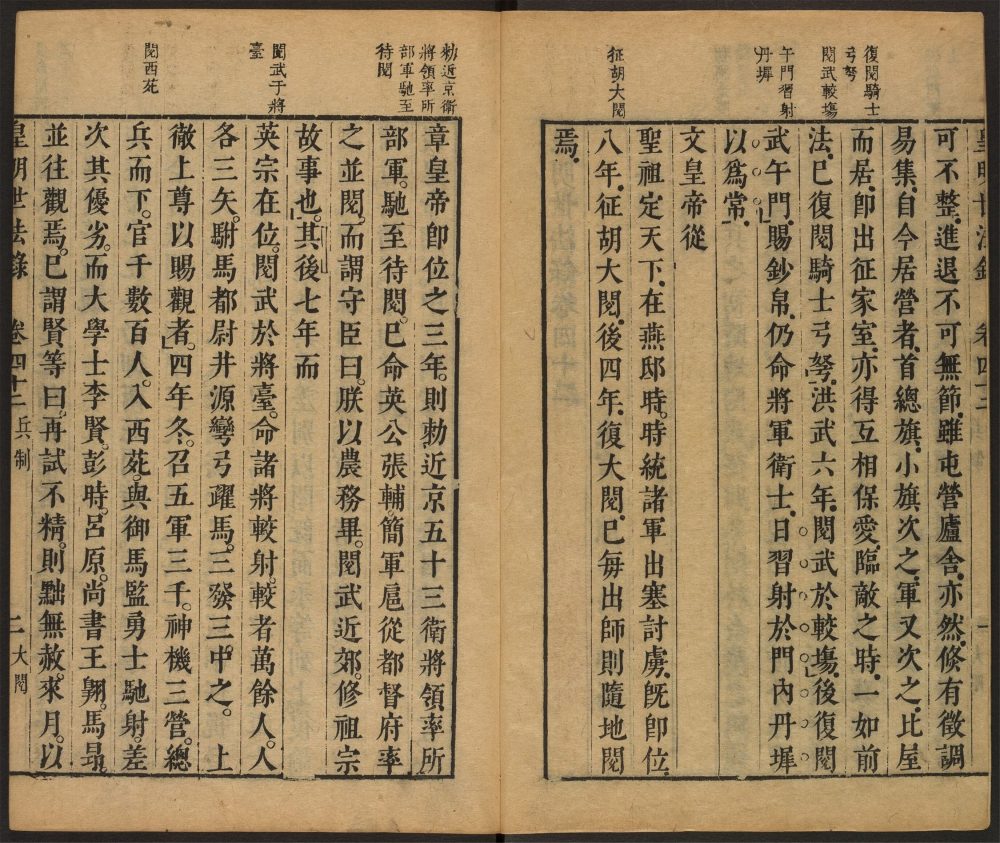 復閱騎士
弓弩
閱武較塲
午門習射
丹墀
征胡大閱
皇明世法錄 卷四十二 一
可不整進退不可無節雖屯營廬舍亦然倏有徵調
易集自今居營者首總旗小旗次之軍又次之比屋
而居卽出征家室亦得互相保愛臨敵之時一如前
法巳復閱騎士弓弩洪武六年閱武於較塲後復閱
武午門賜鈔帛仍命將軍衛士日習射於門內丹墀
以爲常
文皇帝從
聖祖定天下在燕邸時時統諸軍出塞討虜旣卽位
八年征胡大閱後四年復大閱巳每出師則隨地閱
焉
勑近京衛
將領率所
部軍馳至
待閱
閱武于將
臺
閱西苑
章皇帝卽位之三年則勑近京五十三衛將領率所
部軍馳至待閱巳命英公張輔簡軍扈從都督府率
之並閱而謂守臣曰朕以農務畢閱武近郊修祖宗
故事也其後七年而
英宗在位閱武於將臺命諸將較射較者萬餘人人
各三矢駙馬都尉井源彎弓躍馬三發三中之上
徹上尊以賜觀者四年冬召五軍三千神機三營總
兵而下官千數百人入西苑與御馬監勇士馳射差
次其優劣而大學士李賢彭時呂原尚書王翺馬昂
並往觀焉巳謂賢等曰再試不精則黜無赦來月以
皇明世法錄 卷四十二 兵制 二 大閱